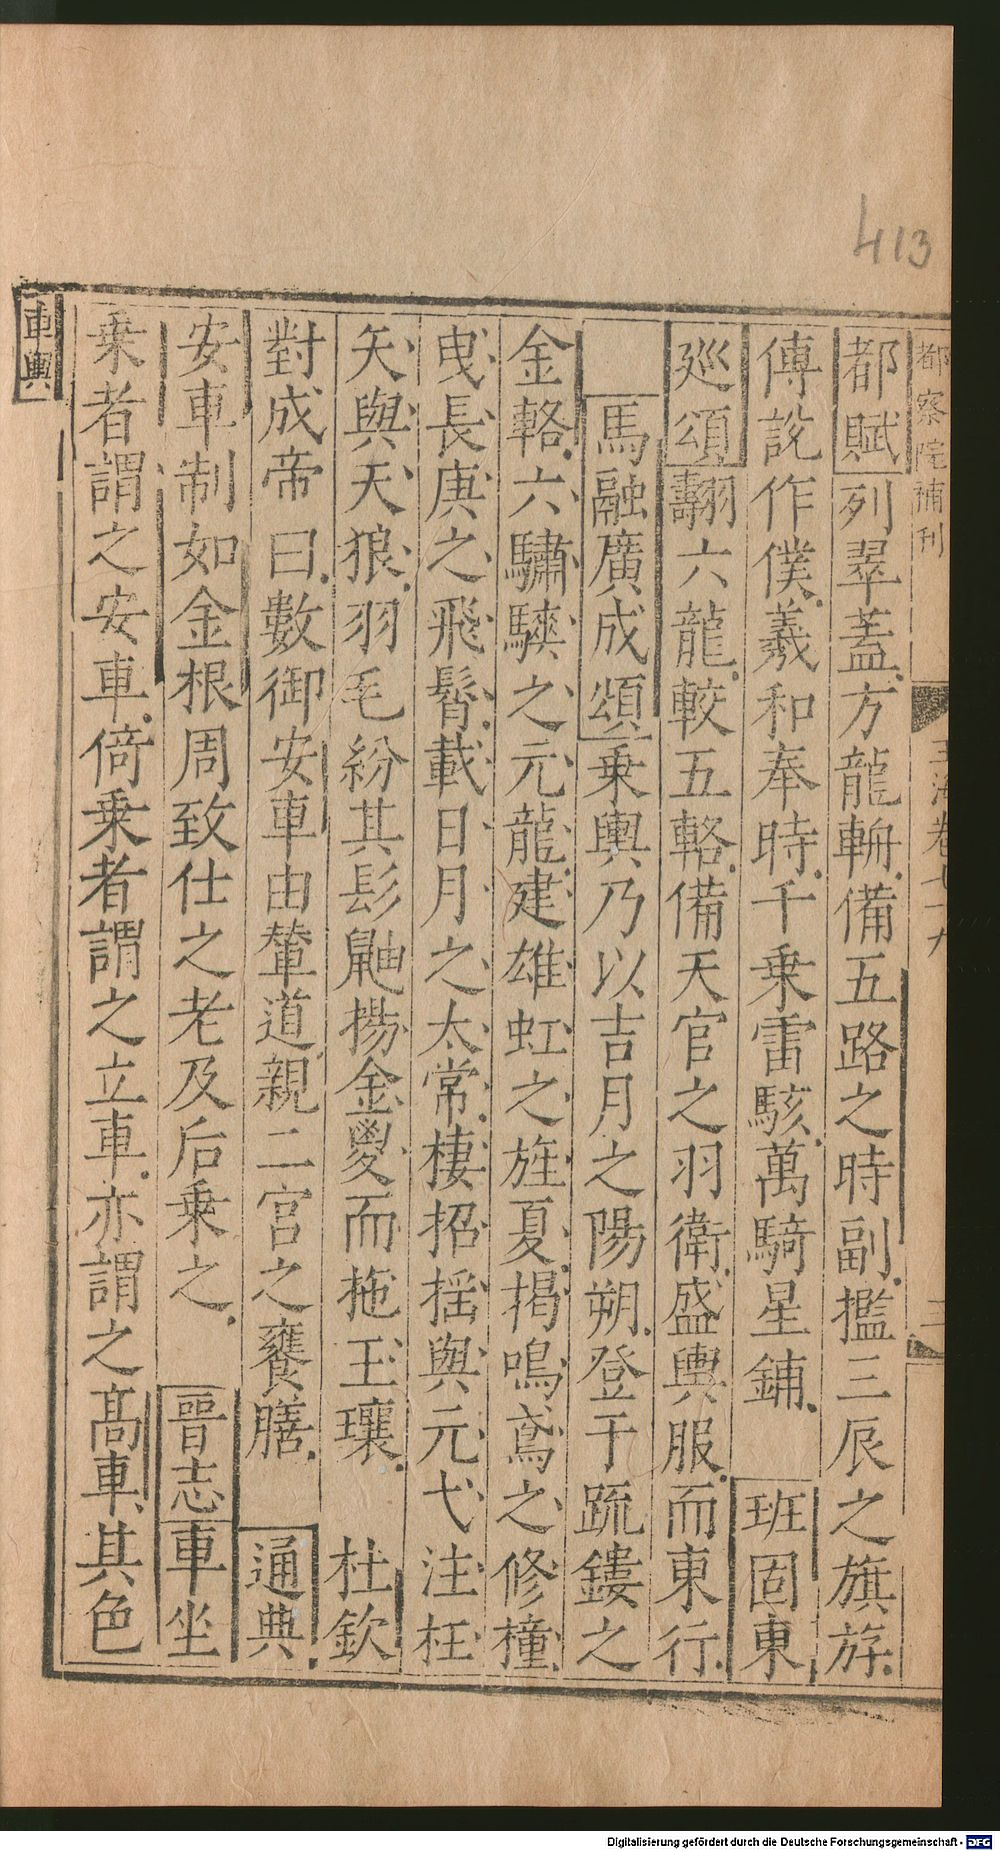 413
都察院補刋
玉海卷七十九
三
都賦列翠蓋方龍輈備五路之時副攎三辰之旗斿
傅說作僕羲和奉時千乗雷駭萬騎星鋪 班固東
巡頌翿六龍較五輅備天官之羽衛盛輿服而東行
馬融廣成頌乗輿乃以吉月之陽朔登于䟽鏤之
金輅六驌駿之元龍建雄虹之旌夏揭鳴鳶之修橦
曵長庚之飛髾載日月之太常棲招揺與元弋注枉
矢與天狼羽毛紛其髟鼬揚金㚇而拖玉瓖 杜欽
對成帝曰數御安車由輦道親二宮之饔膳 通典
安車制如金根周致仕之老及后乗之 晉志車坐
乗者謂之安車倚乗者謂之立車亦謂之髙車其色
車輿
Digitalisierung gefördert durch die Deutsche Forschungsgemeinschaft - DFG